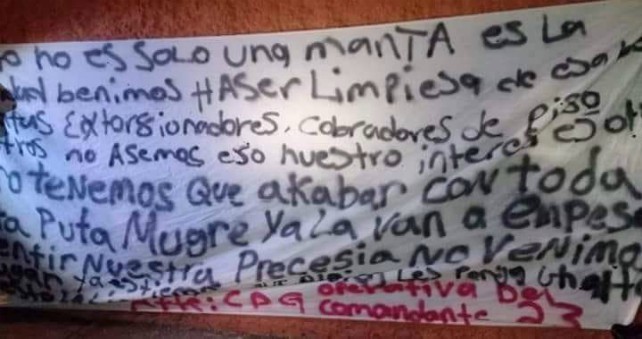 o no es solo una manTA es La
benimos HASer Limpiesa de esa
tas Extorsionadores, Cobradores de Piso
tros no Asemos eso nuestro interes es ot
o teNemos Que aKabar con toda
ta Puta Mugre Ya La van a enpes
entir Nuestra Precesia No Venimo
Les Ponga
Att: C D G operativa Del
comandante 23